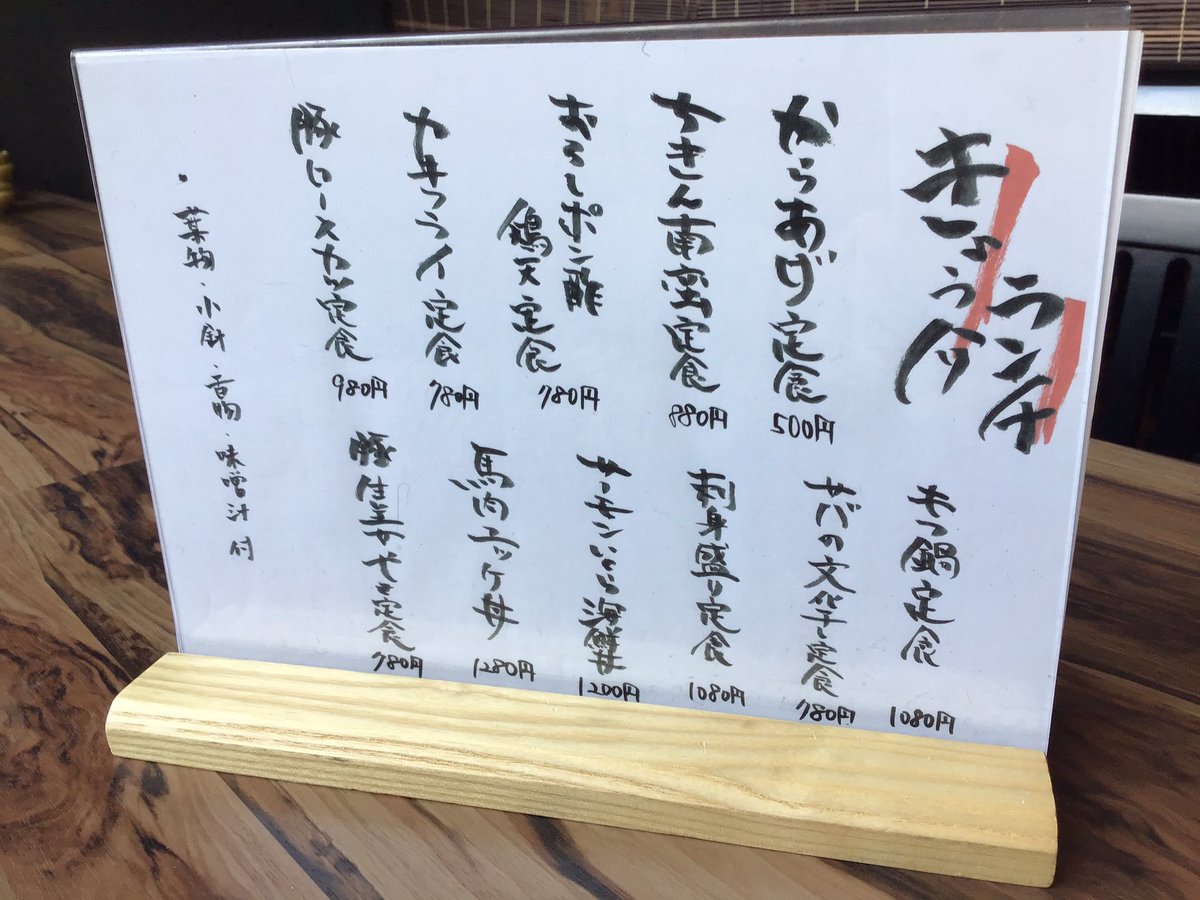 きょうの
ランチ
からあげ定食
500円
ちきん南蛮定食
880円
おろしポン酢
鶏天定食
780円
カキフライ定食
780円
豚ロースカツ定食
980円
もつ鍋定食
1080円
サバの文化干し定食
780円
刺身盛り定食
1080円
サーモンいくら海鮮丼
1200円
馬肉ユッケ丼
1280円
豚生姜やき定食
780円
・葉物・小鉢・香物・味噌汁付